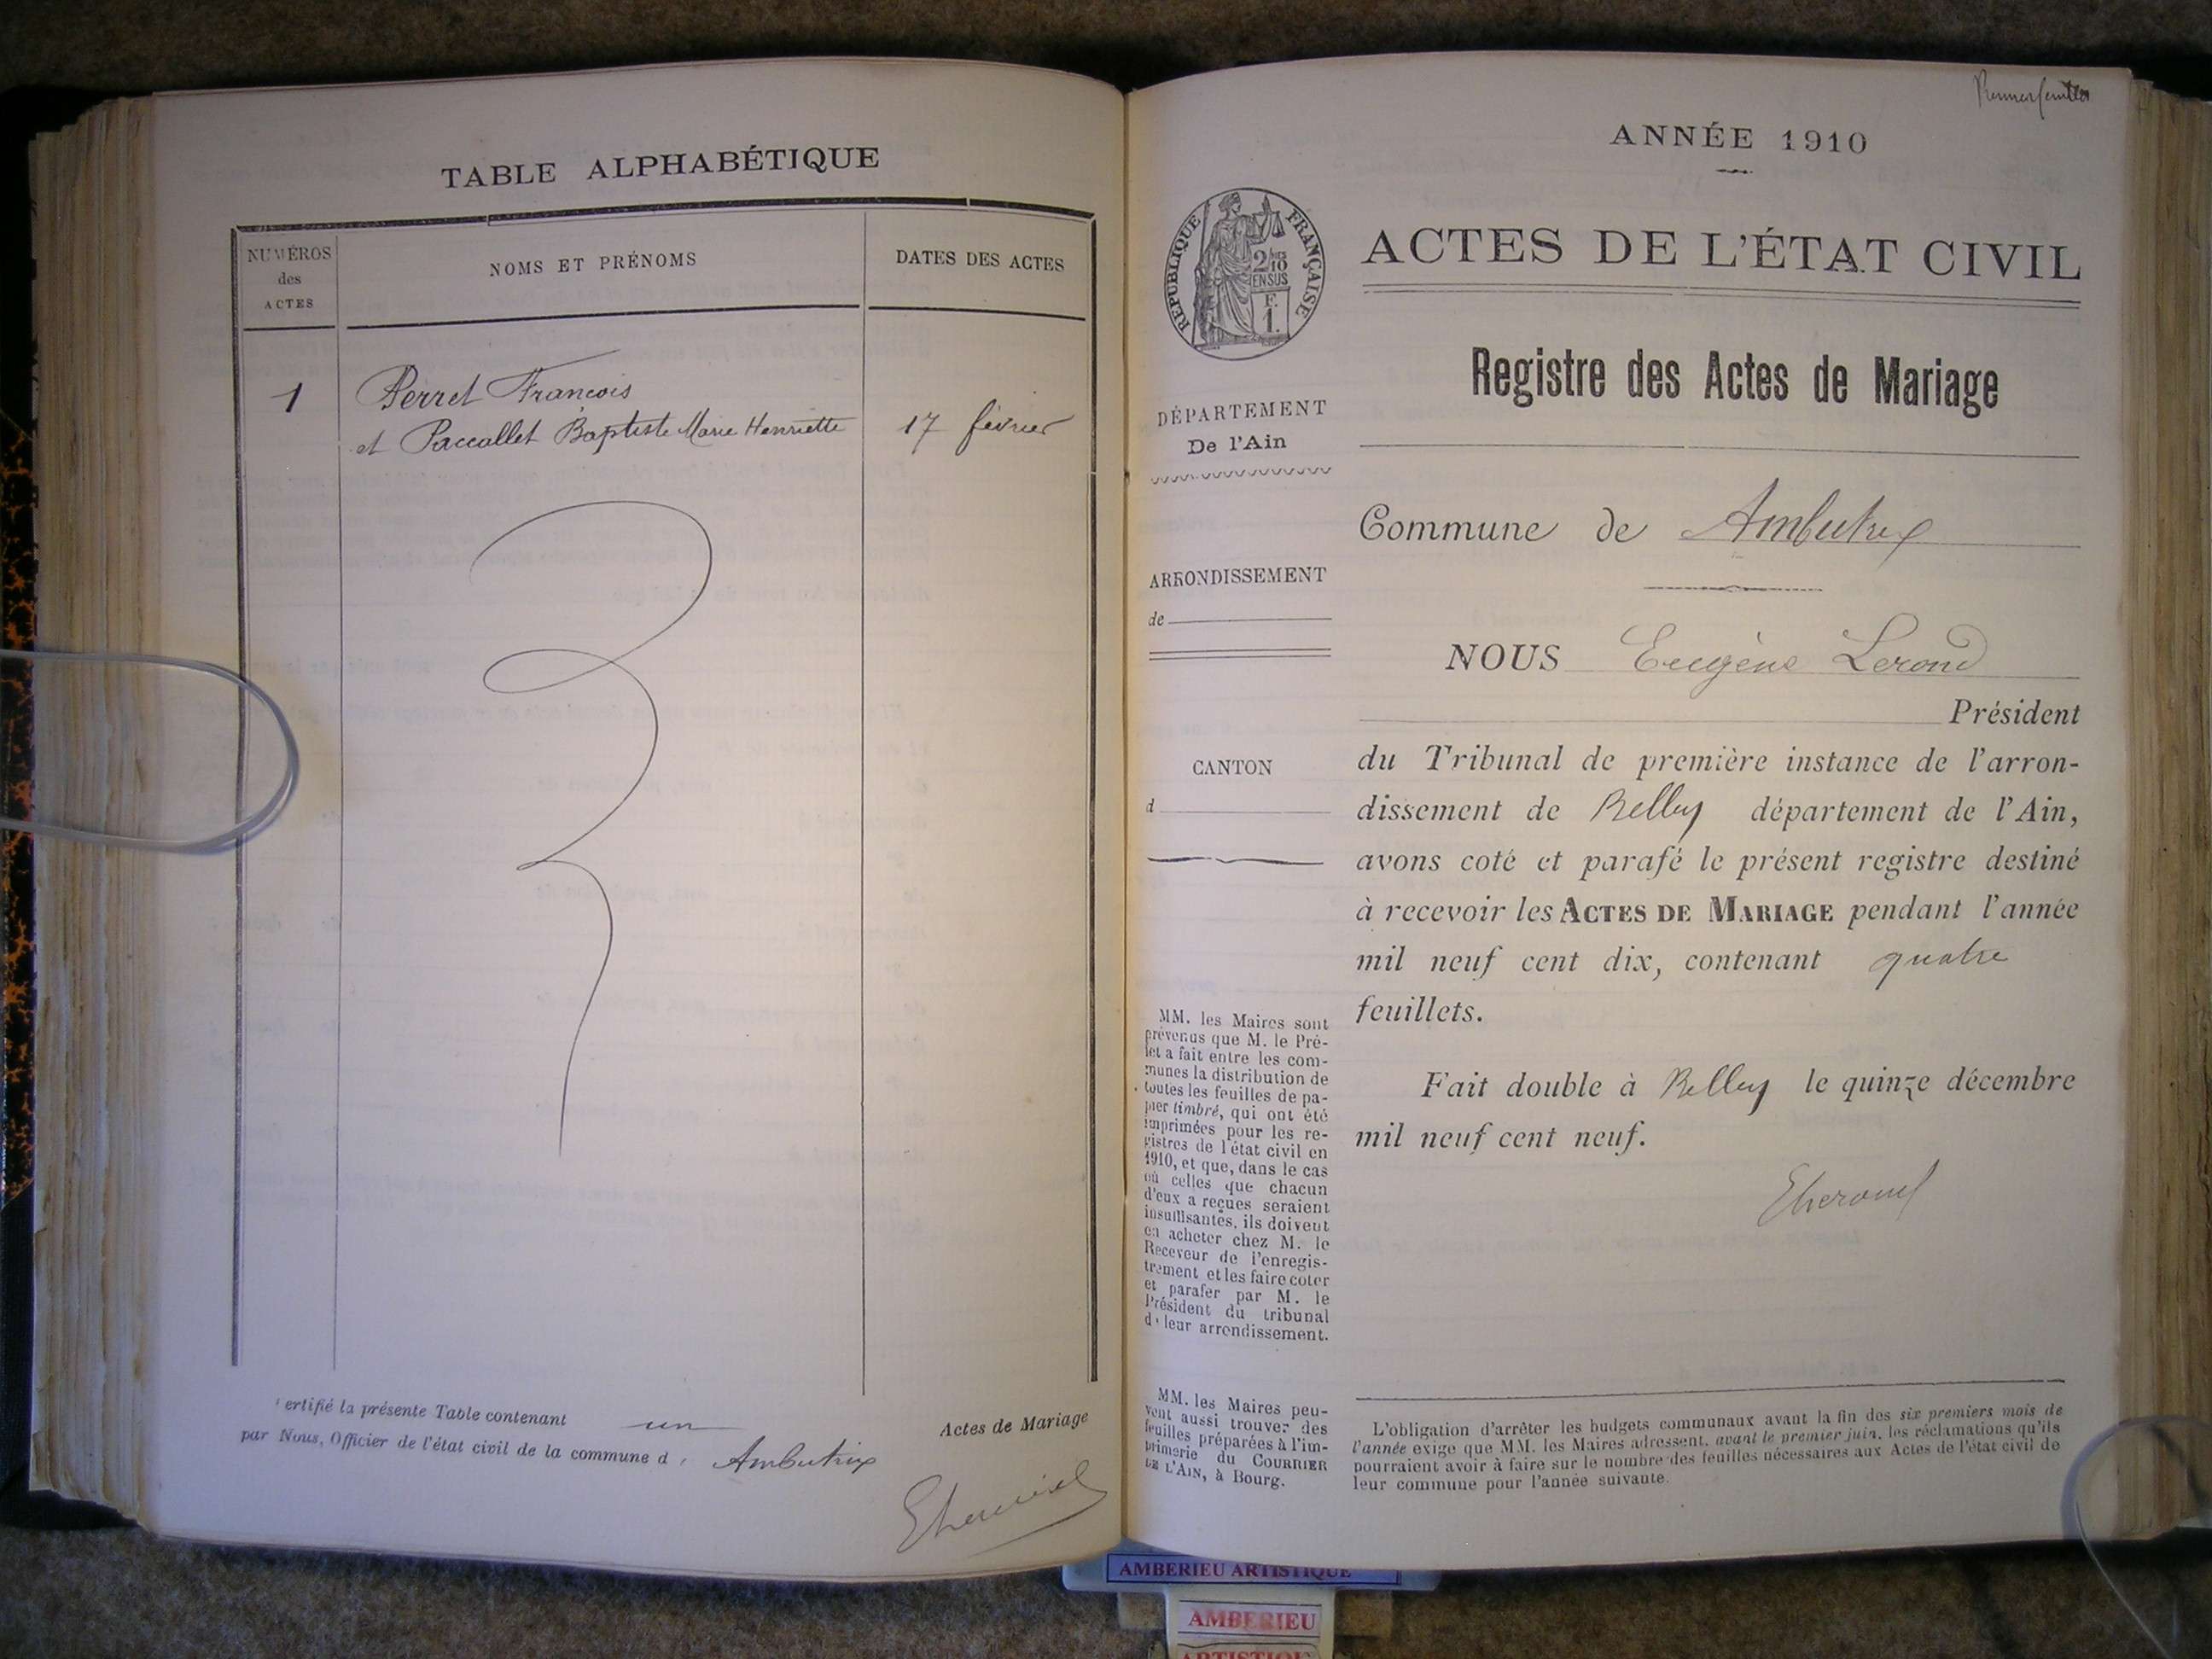 TABLE ALPHABÉTIQUE
NUMÉROS
des
ACTES
NOMS ET PRÉNOMS
DATES DES ACTES
1
Perret François
et Paccallet Baptiste Marie Henriette
17 février
ertifié la présente Table contenant un Actes de Mariage
par Nous, Officier de l'état civil de la commune d Ambutrix
Premier feuillet
ANNÉE 1910
RÉPUBLIQUE FRANÇAISE
2/10
EN SUS
F.
1.
ACTES DE L'ÉTAT CIVIL
Registre des Actes de Mariage
DÉPARTEMENT
De l'Ain
ARRONDISSEMENT
de
CANTON
d
MM. les Maires sont
prévenus que M. le Pré-
fet a fait entre les com-
munes la distribution de
toutes les feuilles de pa-
pier timbré, qui ont été
imprimées pour les re-
gistres de l'état civil en
1910, et que, dans le cas
où celles que chacun
d'eux a reçues seraient
insuffisantes, ils doivent
en acheter chez M. le
Receveur de l'enregis-
trement et les faire coter
et parafer par M. le
Président du tribunal
d leur arrondissement.
MM. les Maires peu-
vent aussi trouver des
feuilles préparées à l'im-
primerie du COURRIER
DE L'AIN, à Bourg.
Commune de Ambutrix
NOUS Eugène Lerond
Président
du Tribunal de première instance de l'arron-
dissement de Belley département de l'Ain,
avons coté et parafé le présent registre destiné
à recevoir les ACTES DE MARIAGE pendant l'année
mil neuf cent dix, contenant quatre
feuillets.
Fait double à Belley le quinze décembre
mil neuf cent neuf.
L'obligation d'arrêter les budgets communaux avant la fin des six premiers mois de
l'année exige que MM. les Maires adressent, avant le premier juin, les réclamations qu'ils
pourraient avoir à faire sur le nombre des feuilles nécessaires aux Actes de l'état civil de
leur commune pour l'année suivante.
AMBERIEU ARTISTIQUE
AMBERIEU
ARTISTIQUE